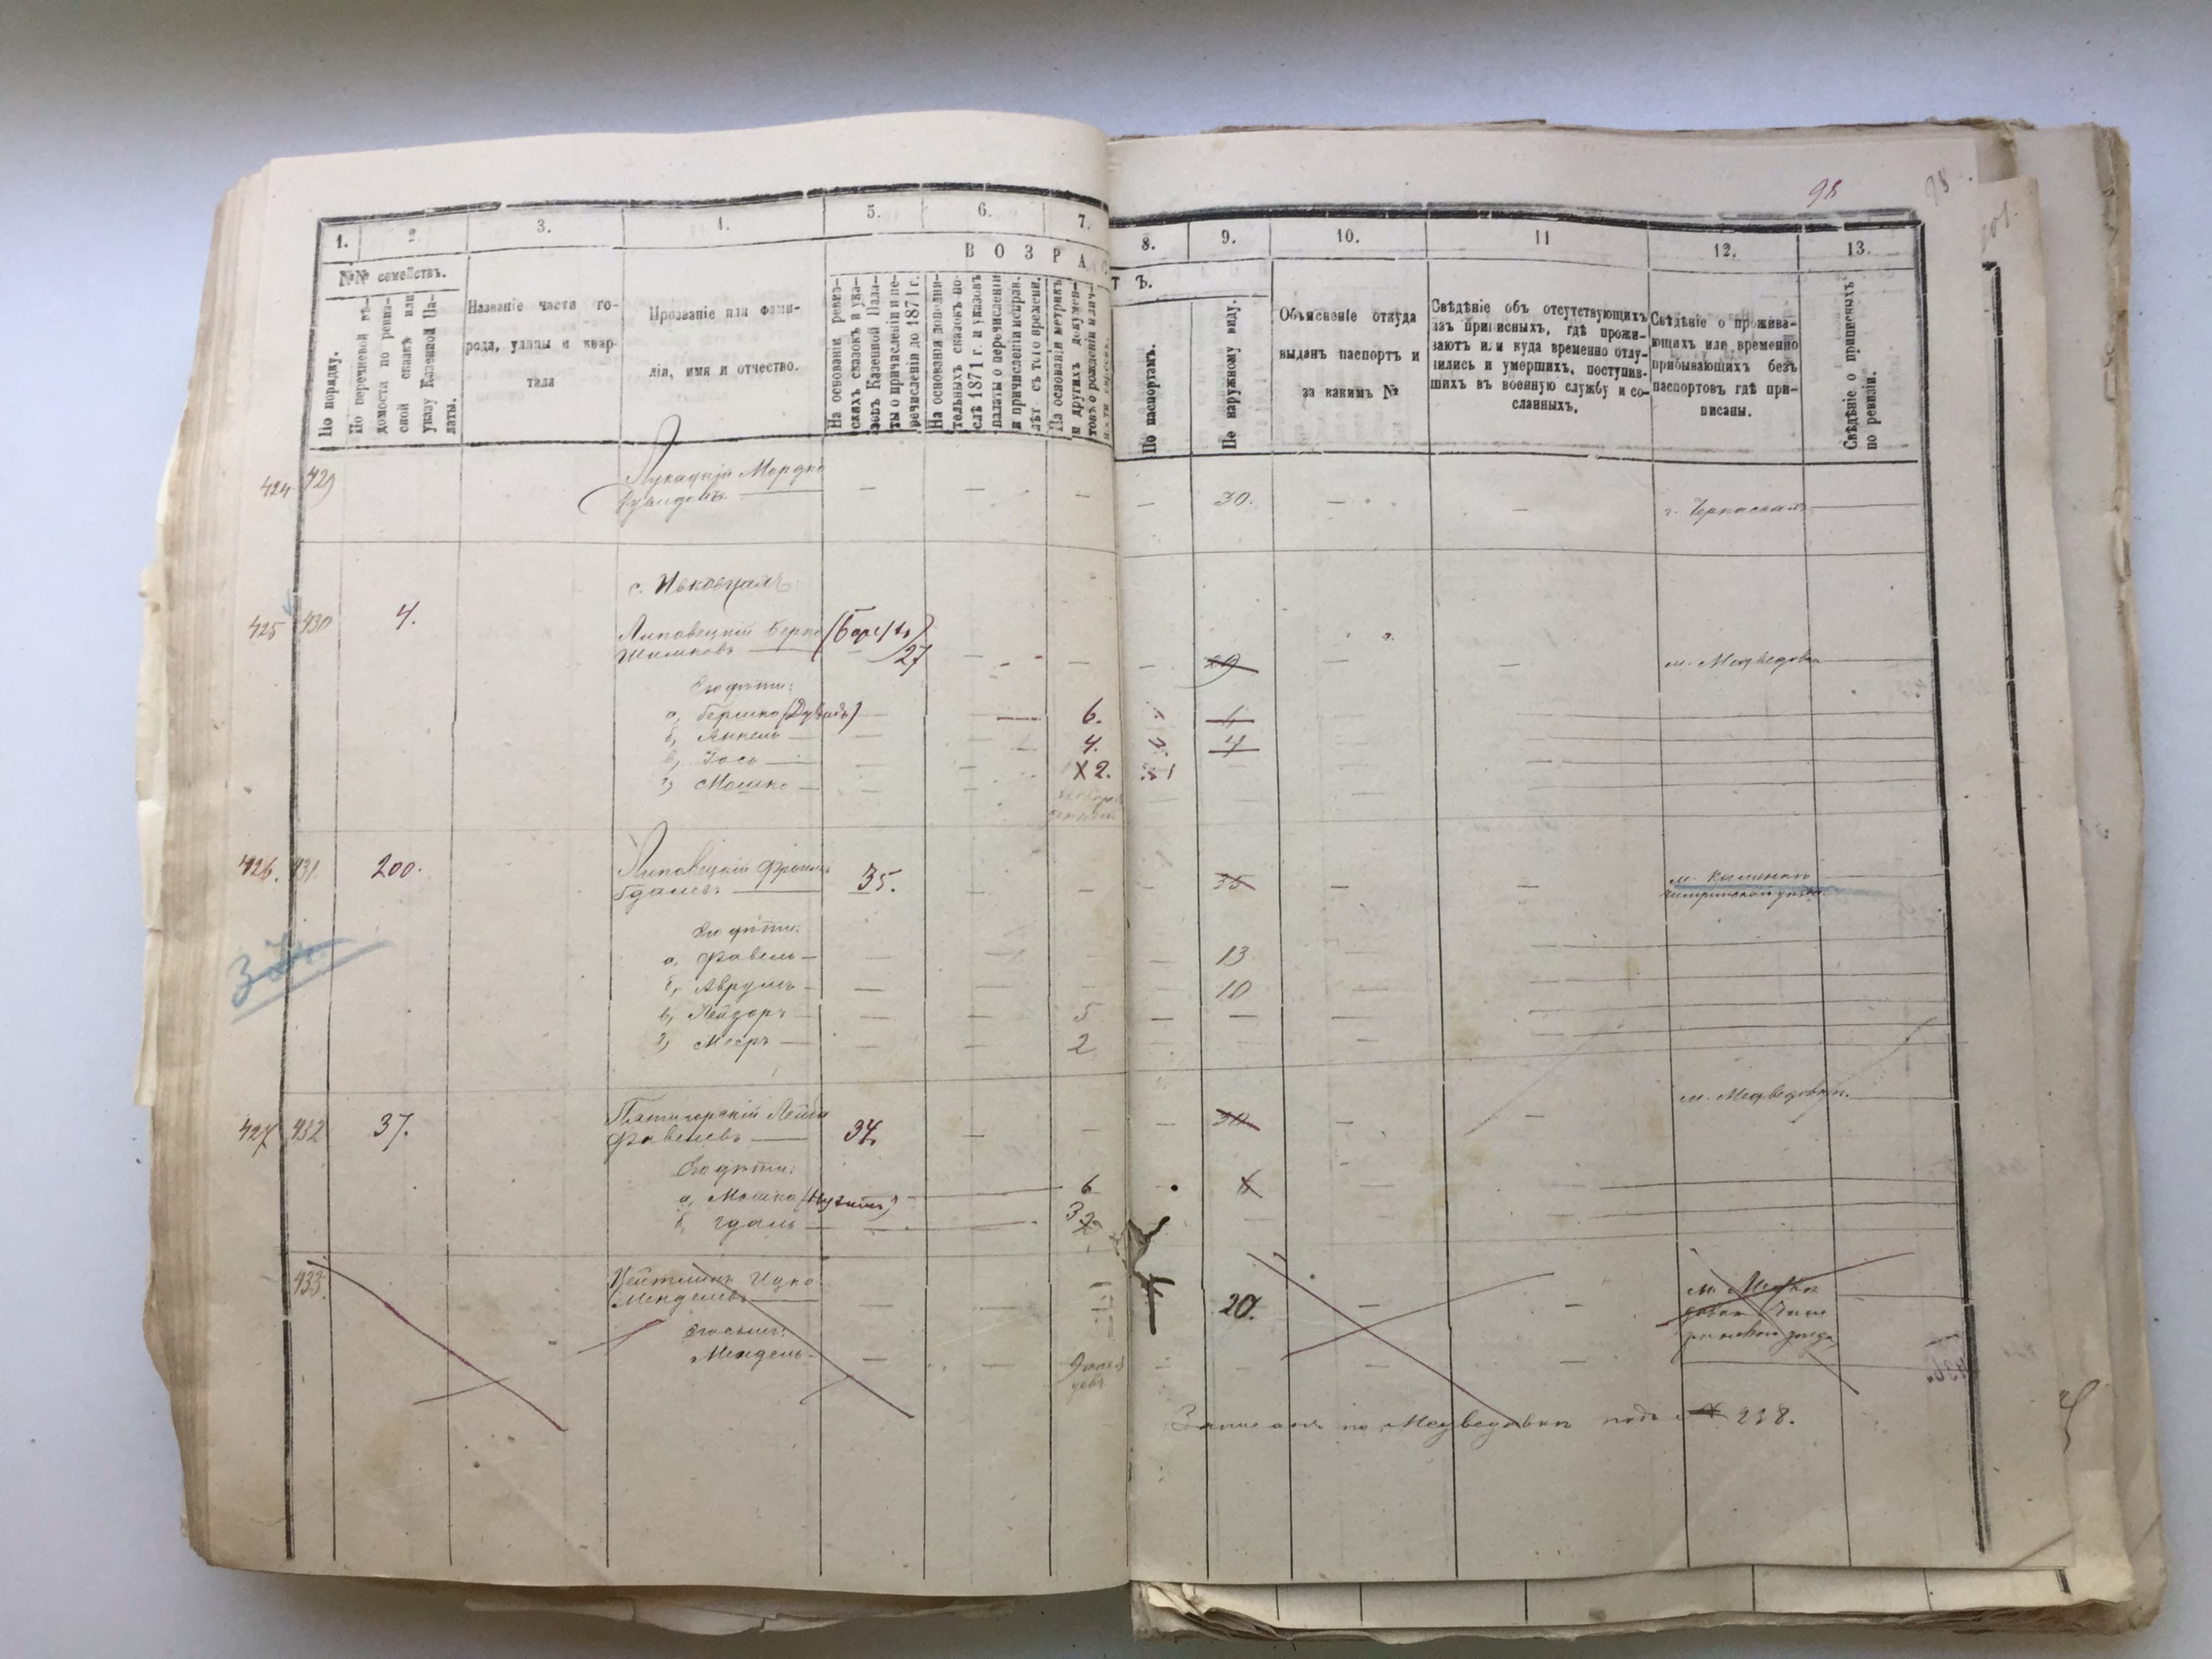 98
1. 2. 3. 4. 5. 6. 7. 8. 9. 10. 11 12. 13.
№№ семействъ.
В О З Р А С Т Ъ.
По порядку.
По перечневой вѣ-
домости по ревиз-
ской сказкѣ или
указу Казенной Па-
латы.
Названіе части го-
рода, улицы и квар-
тала
Прозваніе или фами-
лія, имя и отчество.
На основаніи ревиз-
скихъ сказокъ и ука-
зовъ Казенной Пала-
ты о причисленіи и пе-
речисленіи до 1871 г.
На основаніи дополни-
тельныхъ сказокъ по-
слѣ 1871 г. и указовъ
палаты о перечисленіи
и причисленіи исправ.
лѣт съ того времени.
На основаніи метрикъ
и другихъ докумен-
товъ о рожденіи
По паспортамъ.
По наружному виду.
Объясненіе откуда
выданъ паспортъ и
за какимъ №
Свѣдѣніе объ отсутствующихъ
изъ приписныхъ, гдѣ прожи-
ваютъ или куда временно отлу-
чились и умершихъ, поступив-
шихъ въ военную службу и со-
сланныхъ.
Свѣдѣніе о прожива-
ющихъ или временно
прибывающихъ безъ
паспортовъ гдѣ при-
писаны.
Свѣдѣніе о приписныхъ
по ревизіи.
424 429 Мордко 30. г. Черкассахъ
с. Ивковцахъ
425 430 4. Липовецкій Берко (
Шимковъ 27 29 м. Медведовка
Его дѣти:
а, Бершко (Дувидъ) 6. 6
б, Янкель 4. 4
в, Іось X 2.
г, Мошко
426. 431. 200. Липовецкій Фроимъ
Гдалевъ 35. 35 м. Каменкѣ
Чигиринскаго уѣзда.
Его дѣти:
а, Фавель 13
б, Аврумъ 10
в, Лейзоръ 5
г, Мееръ 2
м. Медведовкѣ.
427 432 37. Пятигорскій Лейба
Фавелевъ 34. 30
Его дѣти:
а, Мошко 6
б, Гдаль 3
433. Цейтлинъ Ицко
Менделевъ 20.
Его сынъ:
Мендель 9
Записанъ по Медведовкѣ подъ № 238.